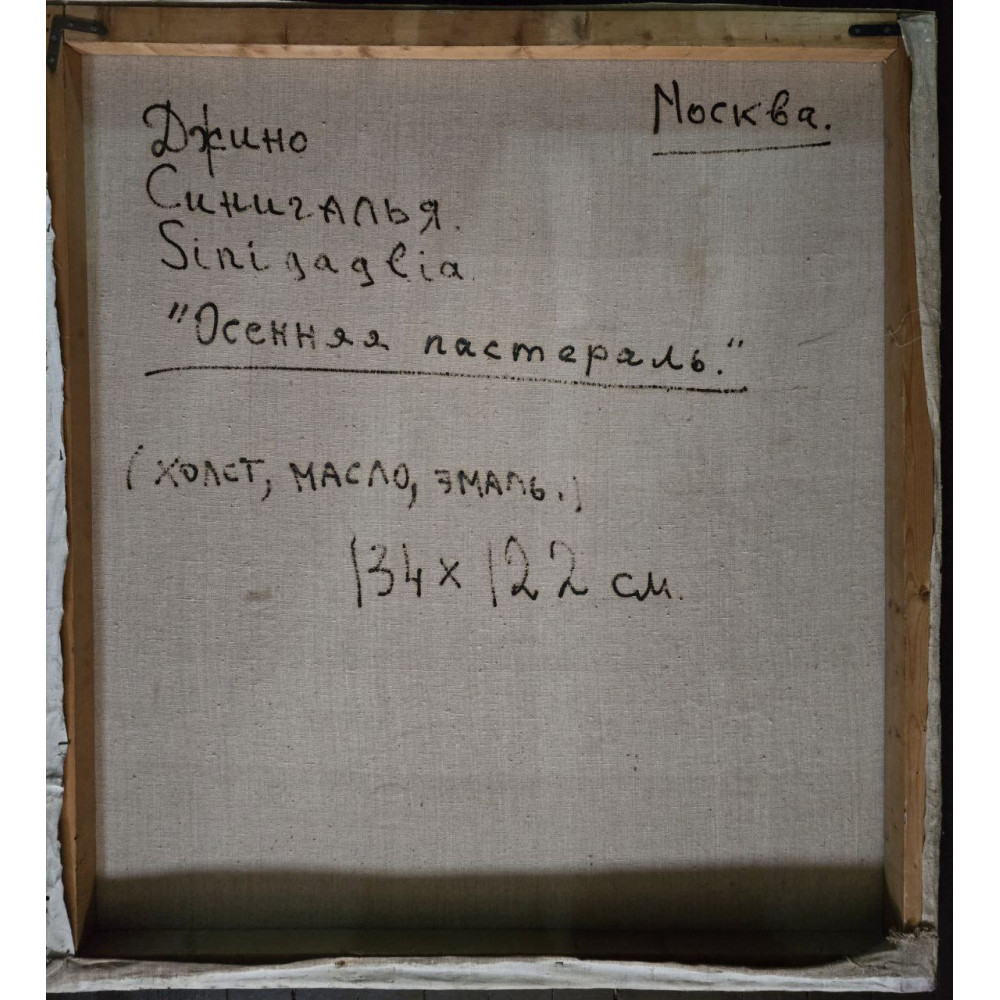 Москва.
Джино
Синигалья.
Sinigaglia.
"Осенняя пастераль."
(ХОЛСТ, МАСЛО, ЭМАЛЬ.)
134 x 122 см.